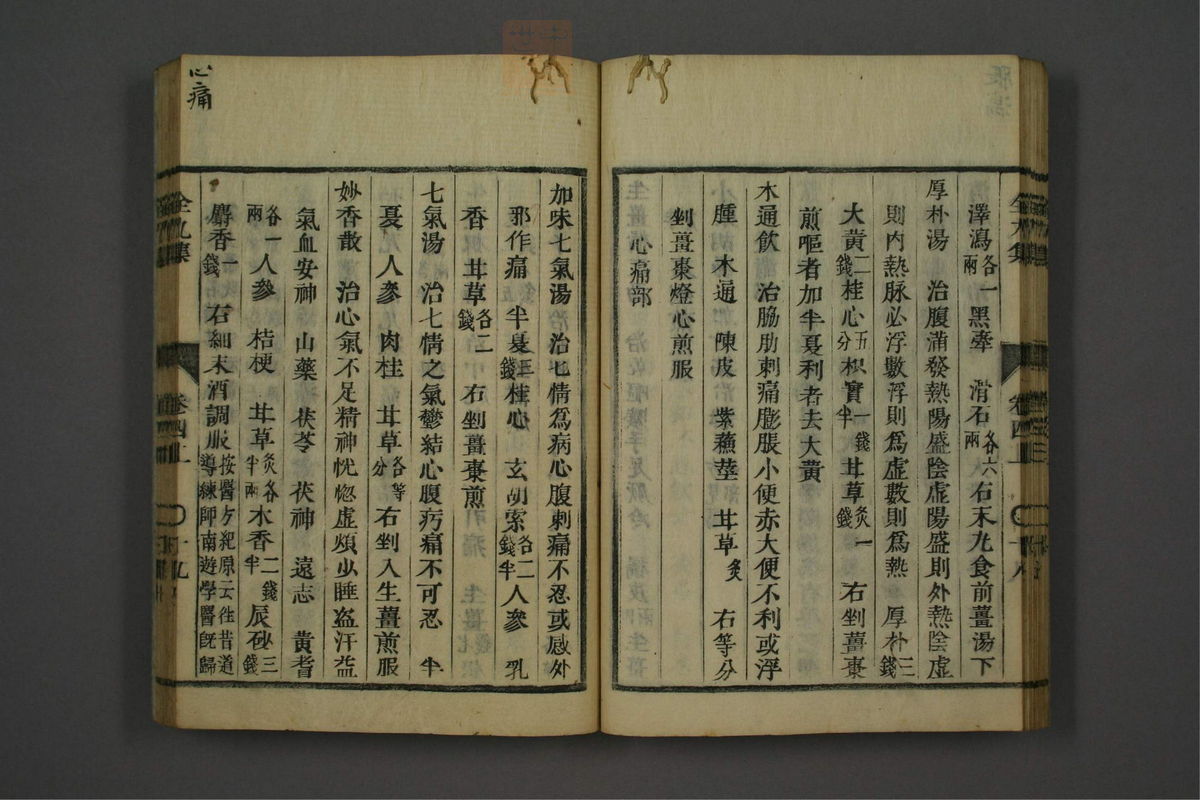 澤瀉各一兩黑牽 滑石各六兩右末丸食前薑湯下
厚朴湯 治腹滿發熱陽盛陰虛陽盛則外熱陰虛
則內熱脉必浮數浮則爲虛數則爲熱 厚朴三錢
大黃二錢桂心五分枳實一錢半甘草炙一錢 右剉薑棗
煎嘔者加半夏利者去大黃
木通飲 治脇肋刺痛膨脹小便赤大便不利或浮
腫 木通 陳皮 紫蘇莖 甘草炙 右等分
剉薑棗燈心煎服
心痛部
加味七氣湯 治七情爲病心腹刺痛不忍或感外
邪作痛 半夏三錢桂心 玄胡索各二錢半人參 乳
香 甘草各二錢 右剉薑棗煎
七氣湯 治七情之氣鬱結心腹疞痛不可忍 半
夏人參 肉桂 甘草各等分 右剉入生薑煎服
妙香散 治心氣不足精神恍惚虛煩少睡盜汗益
氣血安神 山藥 茯苓 茯神 遠志 黃耆
各一兩人參 桔梗 甘草炙各半兩木香二錢半辰砂三錢
麝香一錢 右細末酒調服按醫方紀原云往昔道導練師南遊學醫旣歸
心痛
卷四上
十八
卷四上
十九